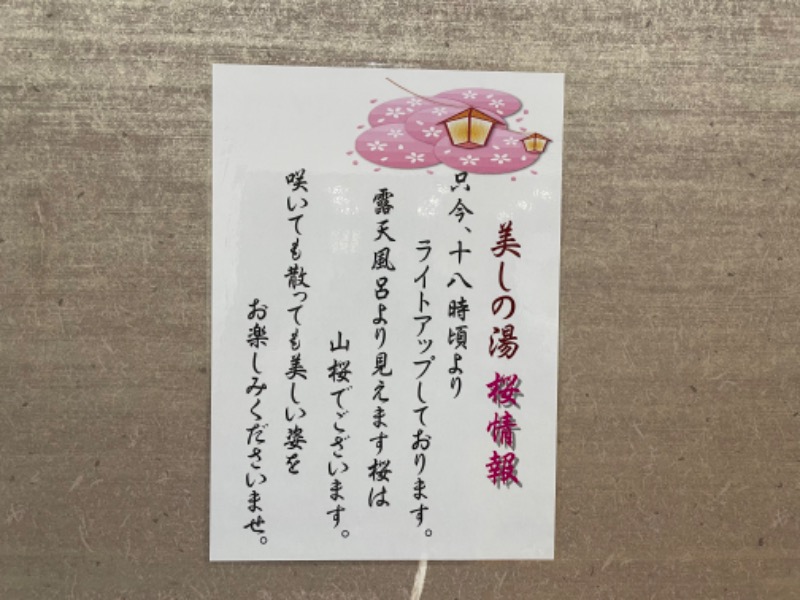 美しの湯 桜情報
只今、十八時頃より
ライトアップしております。
露天風呂より見えます桜は
山桜でございます。
咲いても散っても美しい姿を
お楽しみくださいませ。